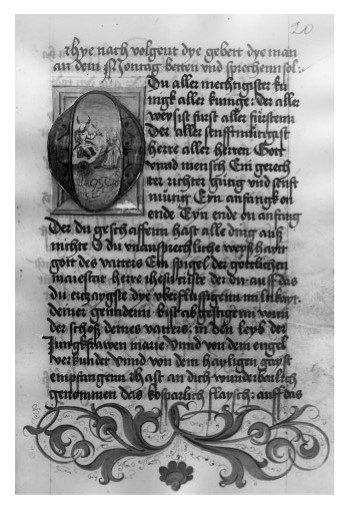 20
hye nach volgent dye gebett dye man
an dem Montag betten vnd sprechenn sol:
Du aller mechtigister kü
nigk aller kunige: der aller
weysist fürst aller fürstenn
Der aller senfftmütigast
herre aller herren Gott
vnnd mensch Ein gerech
ter richter gütig vnd senfft
mütig Eyn anfangk on
ende Eyn ende on anfang
Der du geschaffenn hast alle ding auß
nichte O du vnaussprechliche weyßhayt
gott des vatters Ein spigel der göttlichen
maiestat herre ihesu criste der du auff das
du ertzaygst dye vberflüssigenn miltikayt
deiner gnadenn bist abgestigenn vonn
der schoß deines vatters, in den leyb der
Jungkfrawen marie, Vnnd von dem engel
verkundet vnnd von dem hayligen gayst
empfangenn hast an dich wunderbarlich
genommen das kosparlich flaysch: auff das